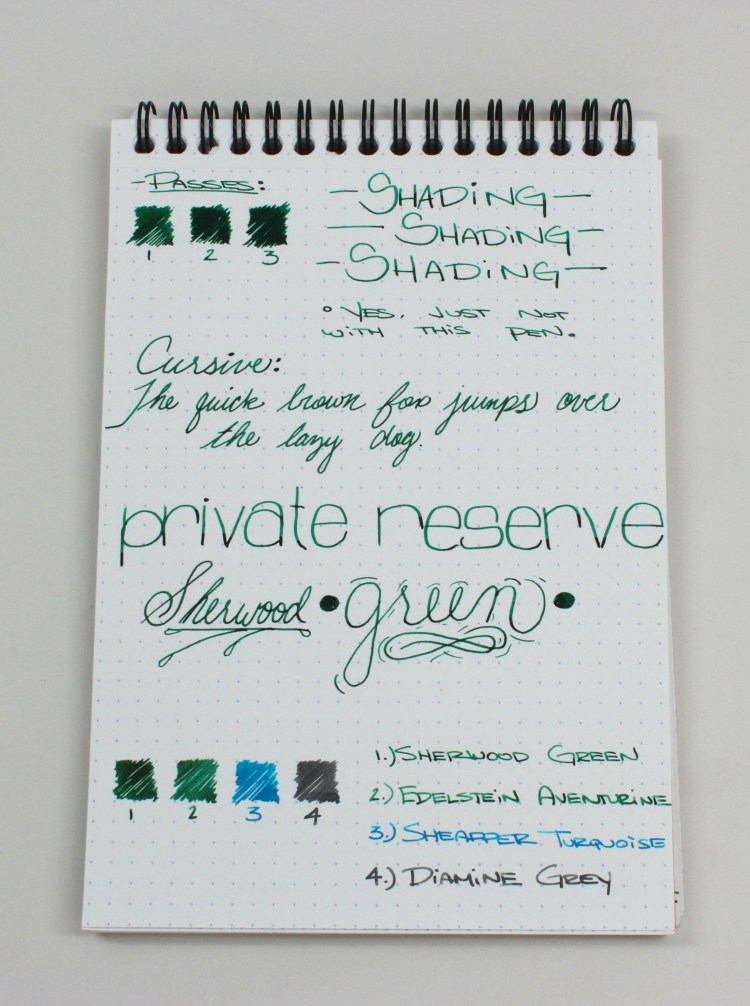 -Passes:
1 2 3
-Shading-
-Shading-
-Shading-
• Yes, just not
with this pen.
Cursive:
The quick brown fox jumps over
the lazy dog.
private reserve
Sherwood • green •
1 2 3 4
1.) Sherwood Green
2.) Edelstein Aventurine
3.) Sheaffer Turquoise
4.) Diamine Grey